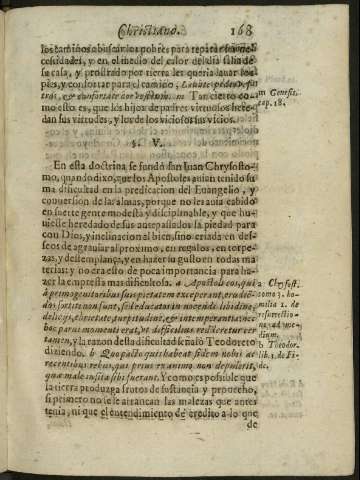 Christiano. 168
los caminos a buscar los pobres para reparar sus ne-
cessidades, y en el medio del calor del dia salia de
su casa, y prostrado por tierra les queria lauar los
pies, y confortar para el camino, Lauate pedes ves-
tros, & confortate cor vestrum. m Tan cierto co-
mo esto es, que los hijos de padres virtuosos here-
dan sus virtudes, y los de viciosos sus vicios.
m Genesis,
cap. 18.
§. V.
En esta doctrina se fundò san Iuan Chrysosto-
mo, quando dixo, que los Apostoles auian tenido su-
ma dificultad en la predicacion del Euangelio, y
conuersion de las almas, porque no les auia cabido
en suerte gente modesta y disciplinable, y que hu-
uiesse heredado de sus antepassados la piedad para
con Dios, y inclinacion al bien, sino criada en des-
seos de agrauiar al proximo, en regalos, en torpe-
zas, y destemplança, y en hazer su gusto en todas ma
terias: y no era esto de poca importancia para ha-
zer la empressa mas dificultosa. a Apostoli eos, qui
à primogenitoribus suis pietatem exceperant, erudiẽ-
dos sortiti non sunt, sed educatos in nocendi libidine,
delicijs, ebrietate, turpitudine, & intemperantia; nec
hoc parui momenti erat, vt difficilius redderetur cer-
tamen, y la razon desta dificultad señalò Teodoreto
diziendo. b Quo pacto quis habeat fidem nobis de
recentibus rebus, qui prius ex animo non depulerit,
quæ male insita sibi fuerant. Y como es possible que
la tierra produzga frutos de sustancia y prouecho,
si primero no se le arrancan las malezas que antes
tenia, ni que el entendimiento dè credito a lo que
a Chrysost.
tomo 3. ho-
milia 1. de
resurrectio-
ne, ad me-
dium.
b Theodor.
lib. 1. de Fi-
de.
de